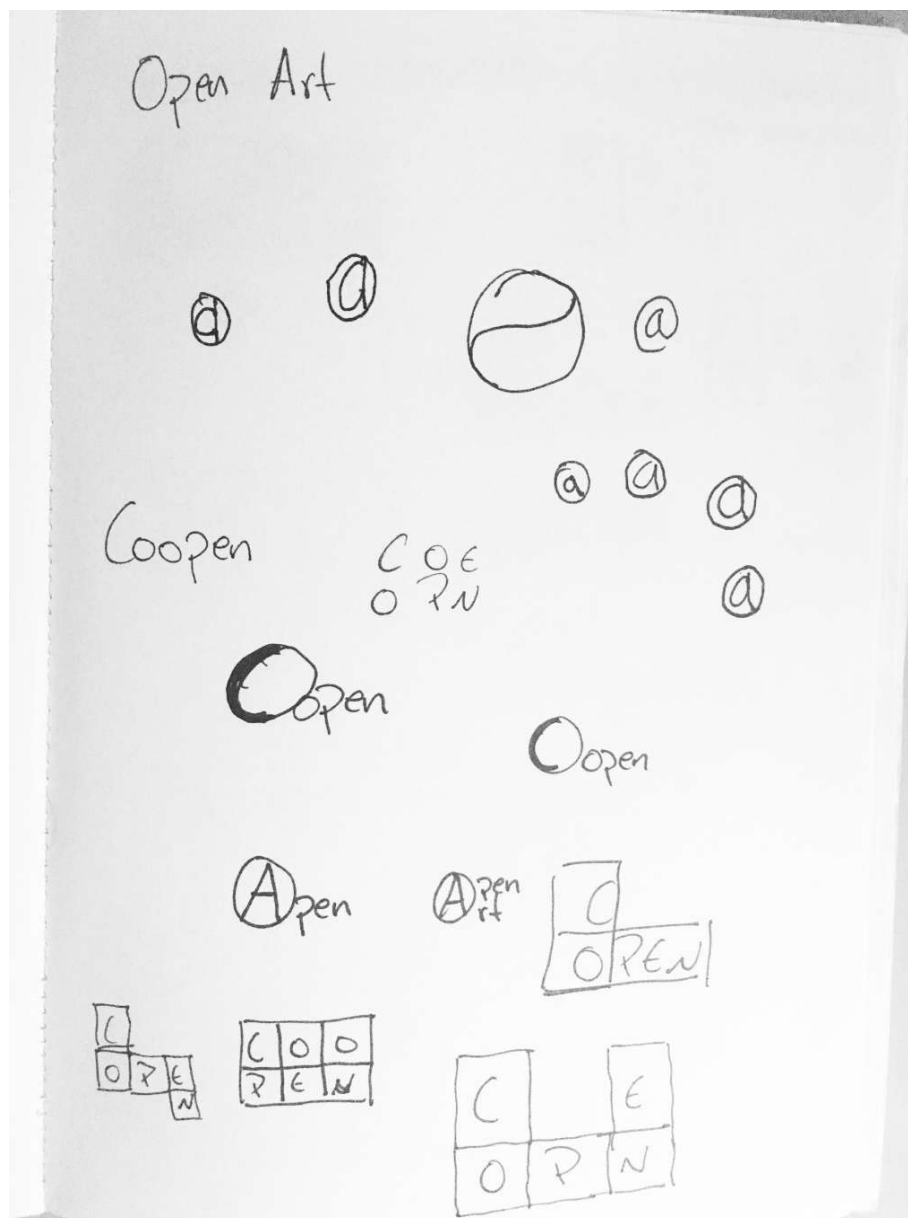 Open Art
a a @
a a a
Coopen
C O E
O P N
a
Coopen
Coopen
Apen
A pen
rt
C
O PEN
C
O P E
N
C O O
P E N
C E
O P N